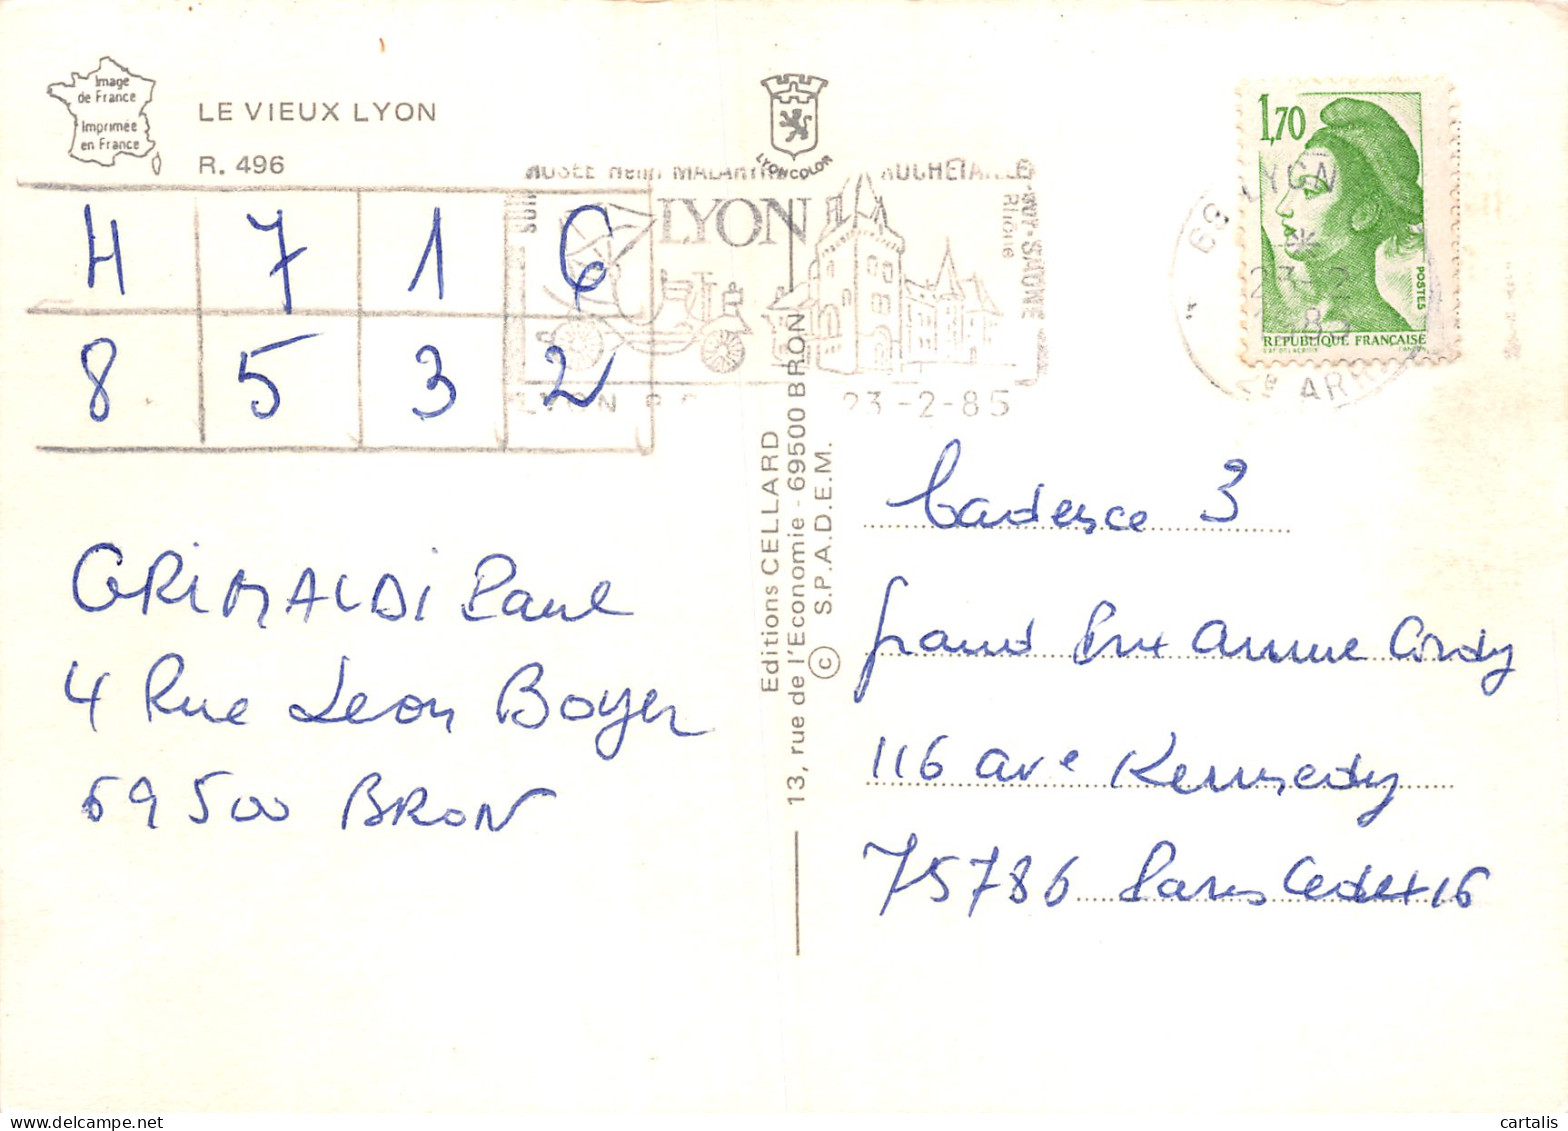 Image
de France
Imprimée
en France
LE VIEUX LYON
R. 496
LYONCOLOR
1,70
POSTES
RÉPUBLIQUE FRANÇAISE
69 LYON
23-2
85
ARR
MUSÉE Henri MALARTRE
ROCHETAILLÉE
SUR-SAONE
Rhône
LYON
LYON
23-2-85
4 7 1 6
8 5 3 2
GRIMALDI Paul
4 Rue Leon Boyer
69500 BRON
Editions CELLARD
13, rue de l'Economie - 69500 BRON
© S.P.A.D.E.M.
Cadence 3
Grand Prix Annie Cordy
116 ave Kennedy
75786 Paris Cedex 16
cartalis